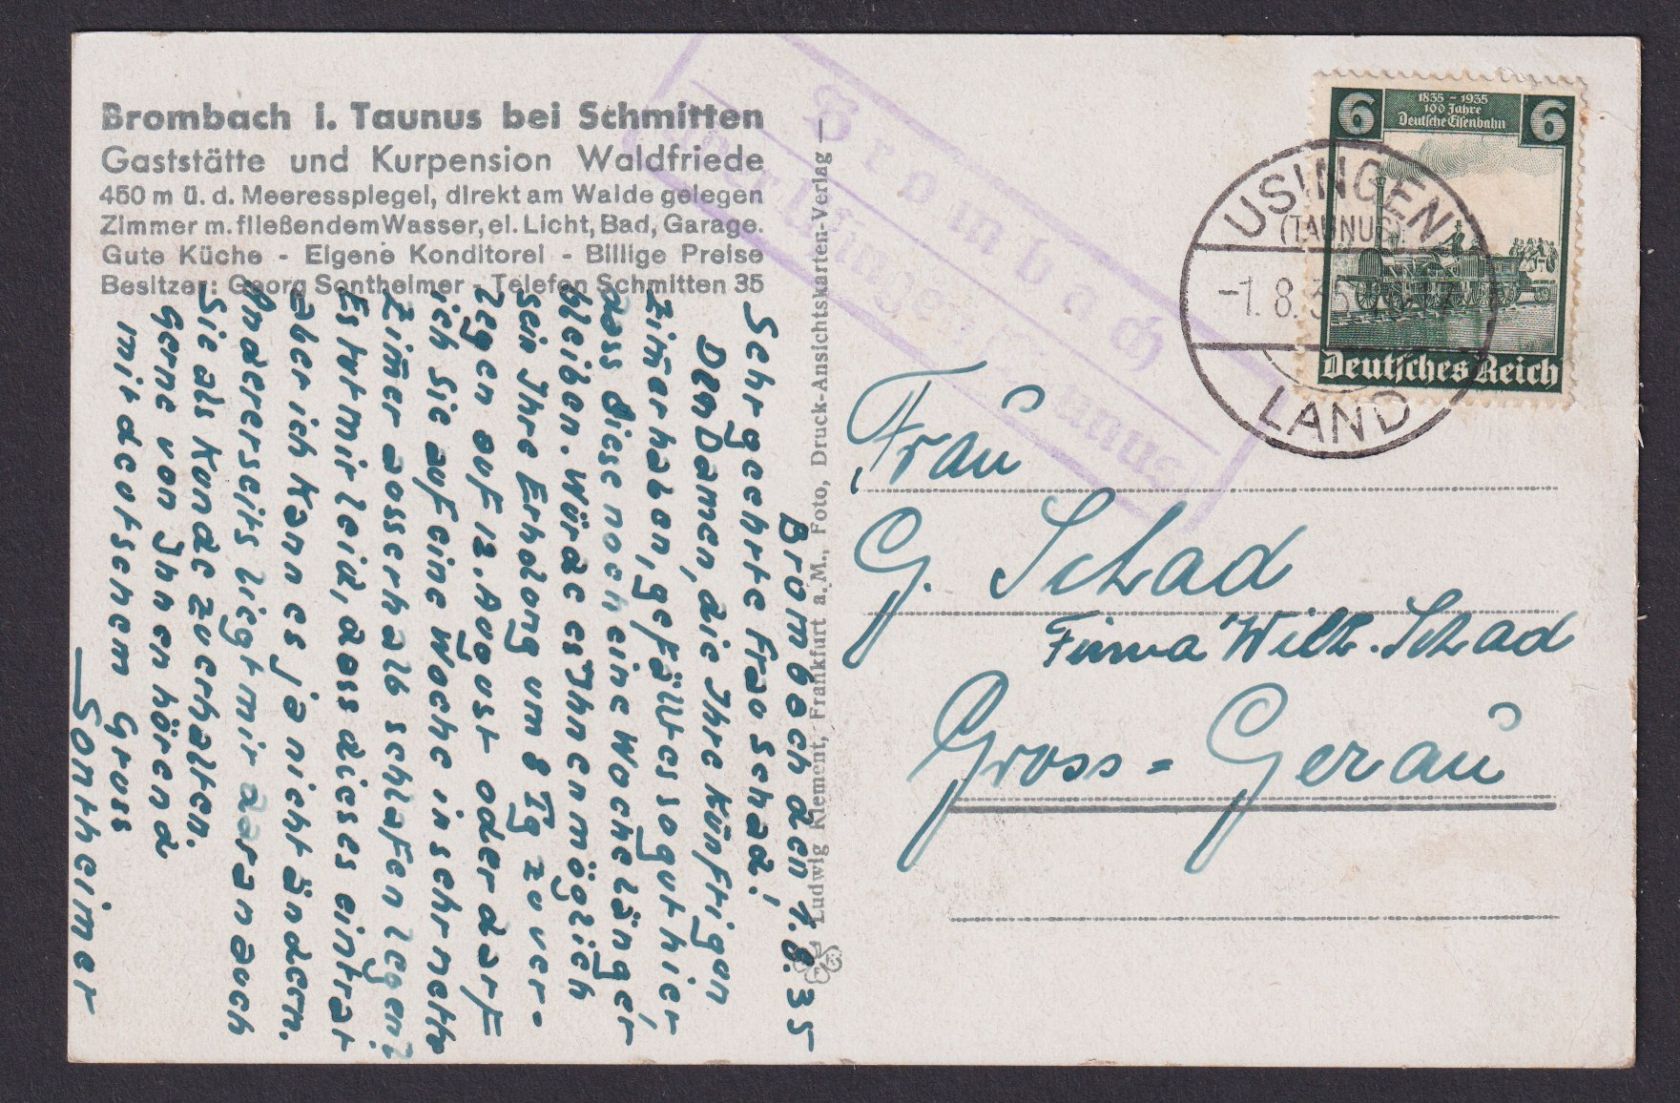 Brombach i. Taunus bei Schmitten
Gaststätte und Kurpension Waldfriede
450 m ü. d. Meeresspiegel, direkt am Walde gelegen
Zimmer m. fließendem Wasser, el. Licht, Bad, Garage.
Gute Küche - Eigene Konditorei - Billige Preise
Besitzer: Georg Sontheimer - Telefon Schmitten 35
Brombach den 1.8.35
Sehrgeehrte Frao Schad!
Den Damen, die Ihre Künftigen
Zim̅er haben, gefällt es so gut hier,
dass diese noch eine Woche länger
bleiben. Würde es Ihnen möglich
sein Ihre Erholung um 8 Tg zu ver-
legen auf 12. August oder darf
ich Sie auf eine Woche in sehr nette
Zim̅er ausserhalb schlafen legen?
Es tut mir leid, dass dieses eintrat
aber ich kann es ja nicht ändern.
Andererseits liegt mir daran auch
Sie als Kunde zu erhalten.
Gerne von Ihnen hörend
mit deutschem Gruss
Sontheimer
Ludwig Klement, Frankfurt a. M., Foto, Druck-Ansichtskarten-Verlag
Brombach
über Usingen Taunus
1835 - 1935
100 Jahre
Deutsche Eisenbahn
6 6
Deutsches Reich
USINGEN
(TAUNUS)
-1.8.35
LAND
Frau
G. Schad
Firma Wilh. Schad
Gross-Gerau